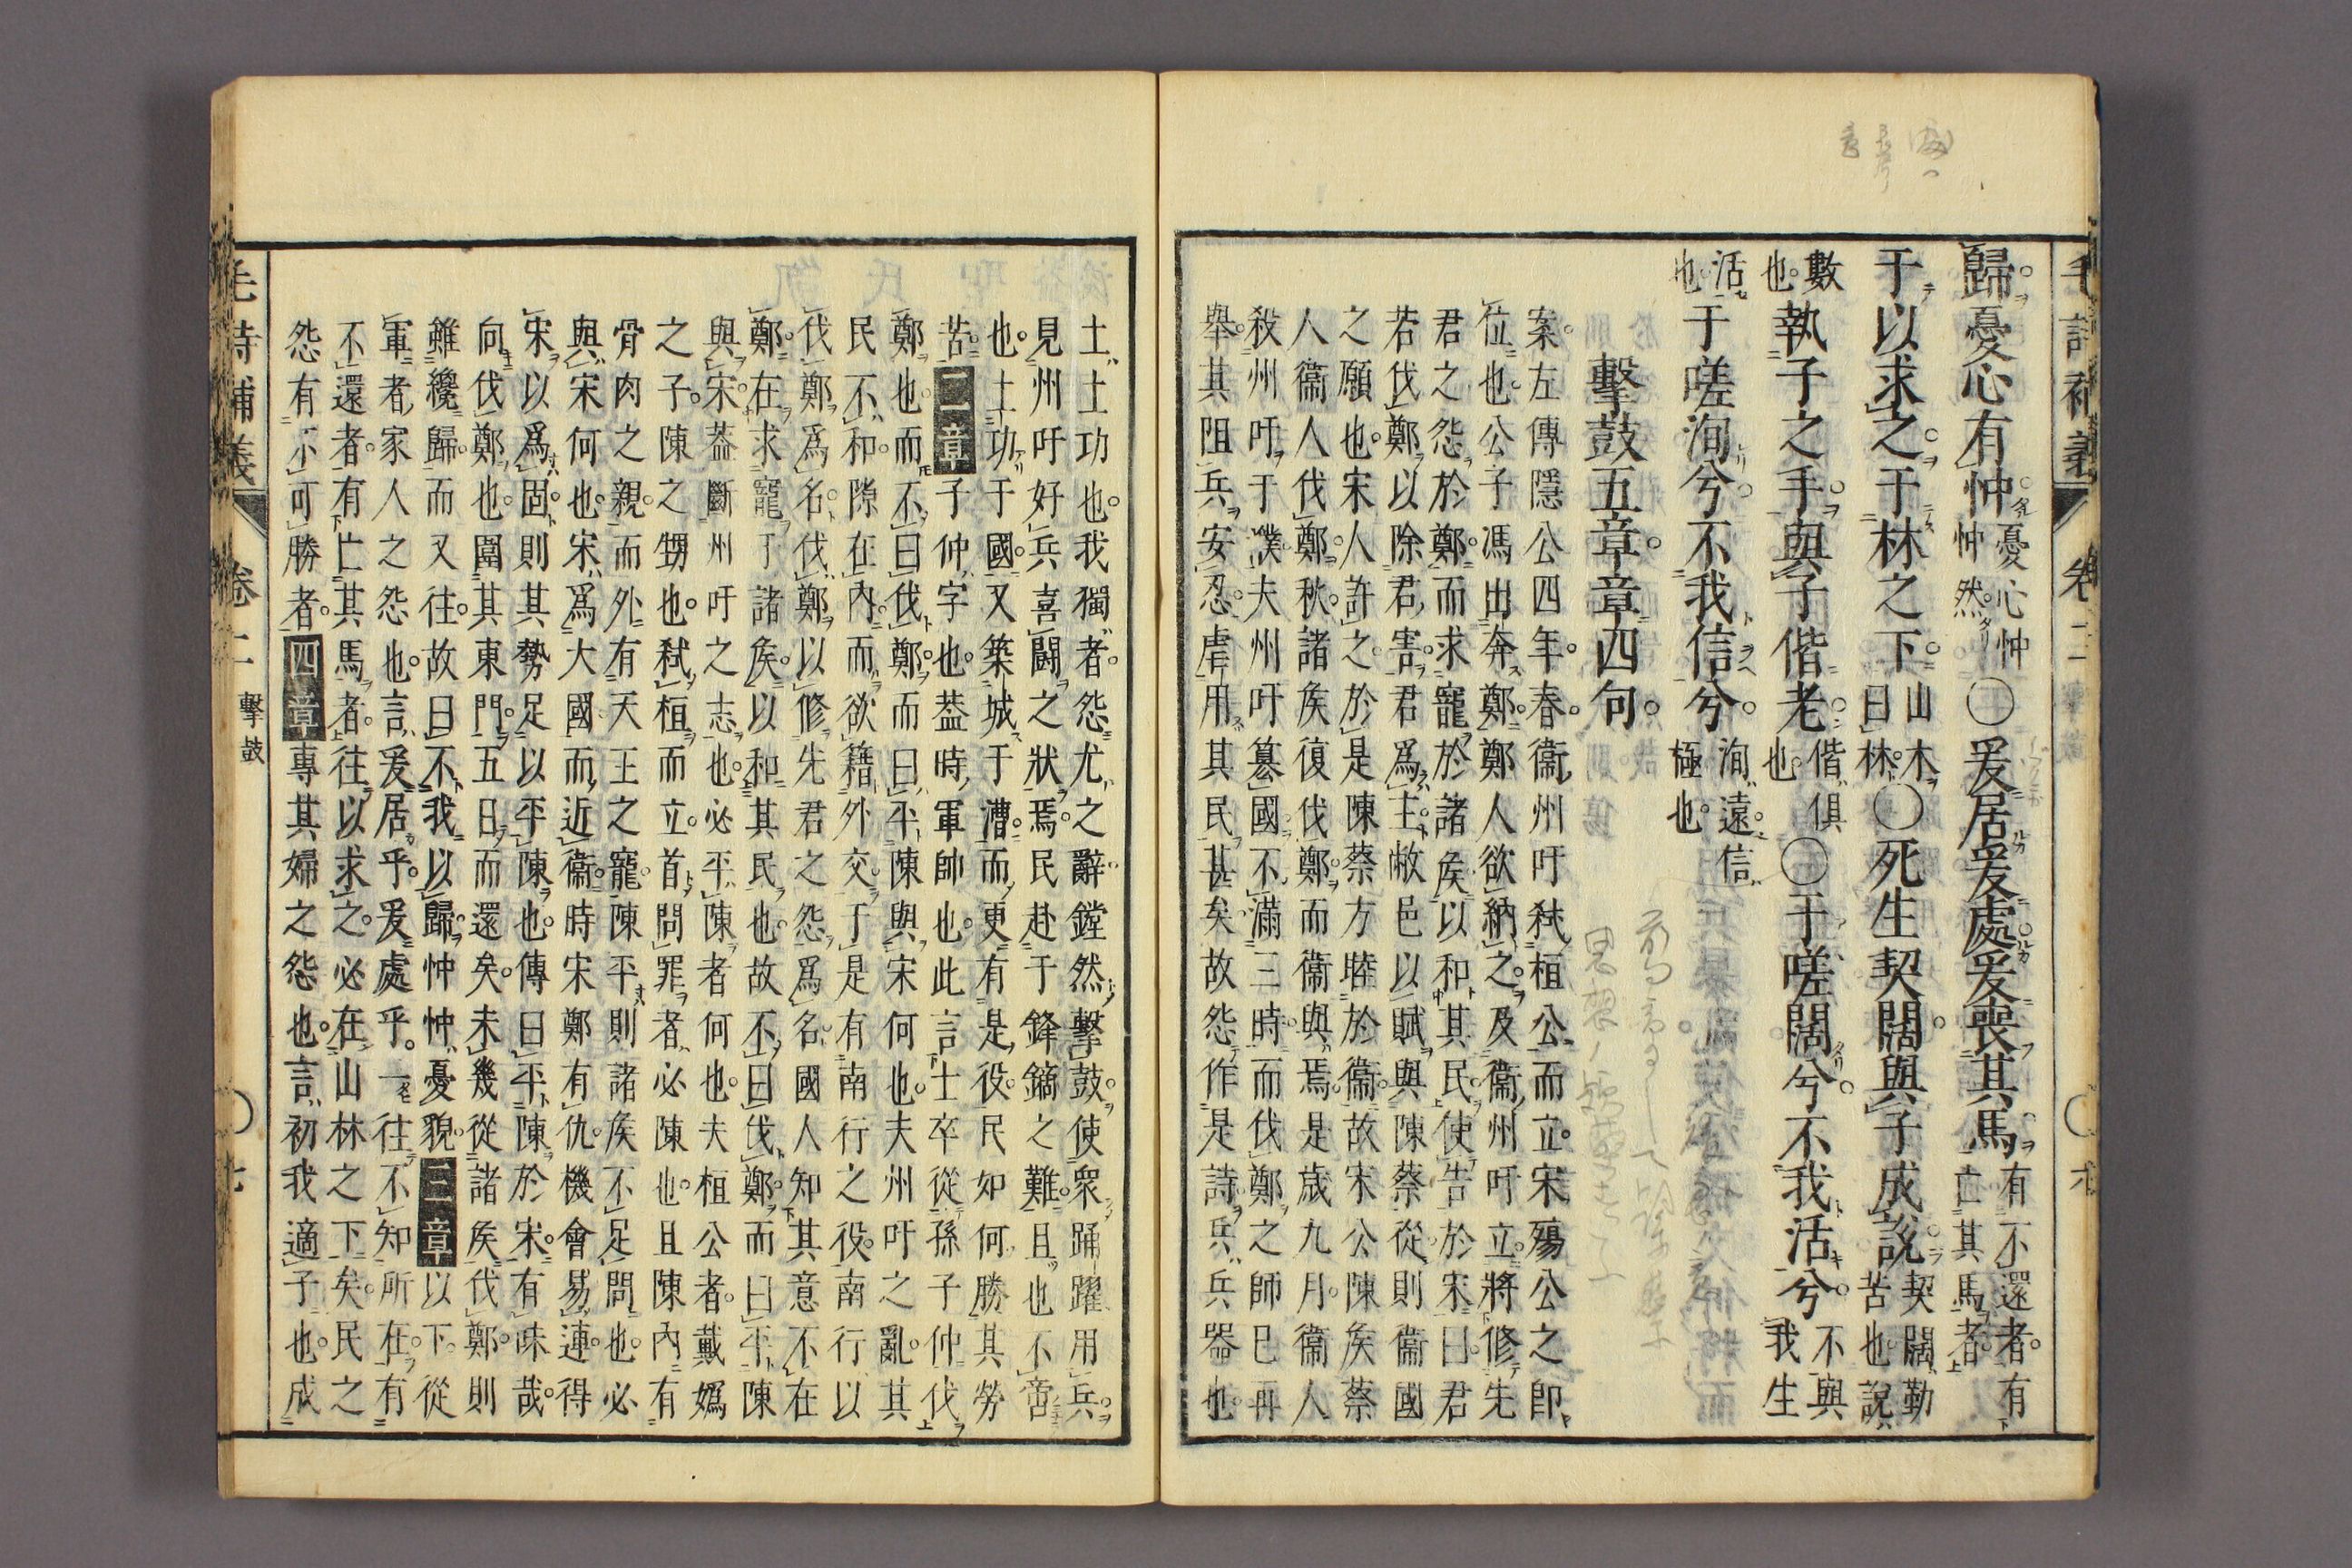 歸憂心有忡憂心忡忡然〇爰居爰處爰喪其馬有不還者有亡其馬者
于以求之于林之下山木曰林〇死生契闊與子成說契闊勤苦也說
數也執子之手與子偕老偕俱也〇于嗟闊兮不我活兮不與我生
活也于嗟洵兮不我信兮洵遠信極也
擊鼓五章章四句
案左傳隱公四年春衞州吁弒桓公而立宋殤公之卽
位也公子馮出奔鄭鄭人欲納之及衞州吁立將修先
君之怨於鄭而求寵於諸矦以和其民使告於宋曰君
若伐鄭以除君害君爲主敝邑以賦與陳蔡從則衞國
之願也宋人許之於是陳蔡方睦於衞故宋公陳矦蔡
人衞人伐鄭秋諸矦復伐鄭而衞與焉是歲九月衞人
殺州吁于濮夫州吁簒國不滿三時而伐鄭之師已再
舉其阻兵安忍虐用其民甚矣故怨作是詩兵兵器也
土土功也我獨者怨尤之辭鏜然擊鼓使衆踊躍用兵
見州吁好兵喜鬪之狀焉民赴于鋒鏑之難且也不啻
也土功于國又築城于漕而更有是役民如何勝其勞
苦二章子仲字也葢時軍帥也此言士卒從孫子仲伐
鄭也而不曰伐鄭而曰平陳與宋何也夫州吁之亂其
民不和隙在內而欲籍外交于是有南行之役南行以
伐鄭爲名伐鄭以修先君之怨爲名國人知其意不在
鄭在求寵于諸矦以和其民也故不曰伐鄭而曰平陳
與宋葢斷州吁之志也必平陳者何也夫桓公者戴嬀
之子陳之甥也弒桓而立首問罪者必陳也且陳內有
骨肉之親而外有天王之寵陳平則諸矦不足問也必
與宋何也宋爲大國而近衞時宋鄭有仇機會易連得
宋以爲固則其勢足以平陳也傳曰平陳於宋有味哉
向伐鄭也圍其東門五日而還矣未幾從諸矦伐鄭則
雖纔歸而又往故曰不我以歸忡忡憂貌三章以下從
軍者家人之怨也言爰居乎爰處乎一往不知所在有
不還者有亡其馬者往以求之必在山林之下矣民之
怨有不可勝者四章專其婦之怨也言初我適子也成
毛詩補義 卷二 擊鼓 〇七